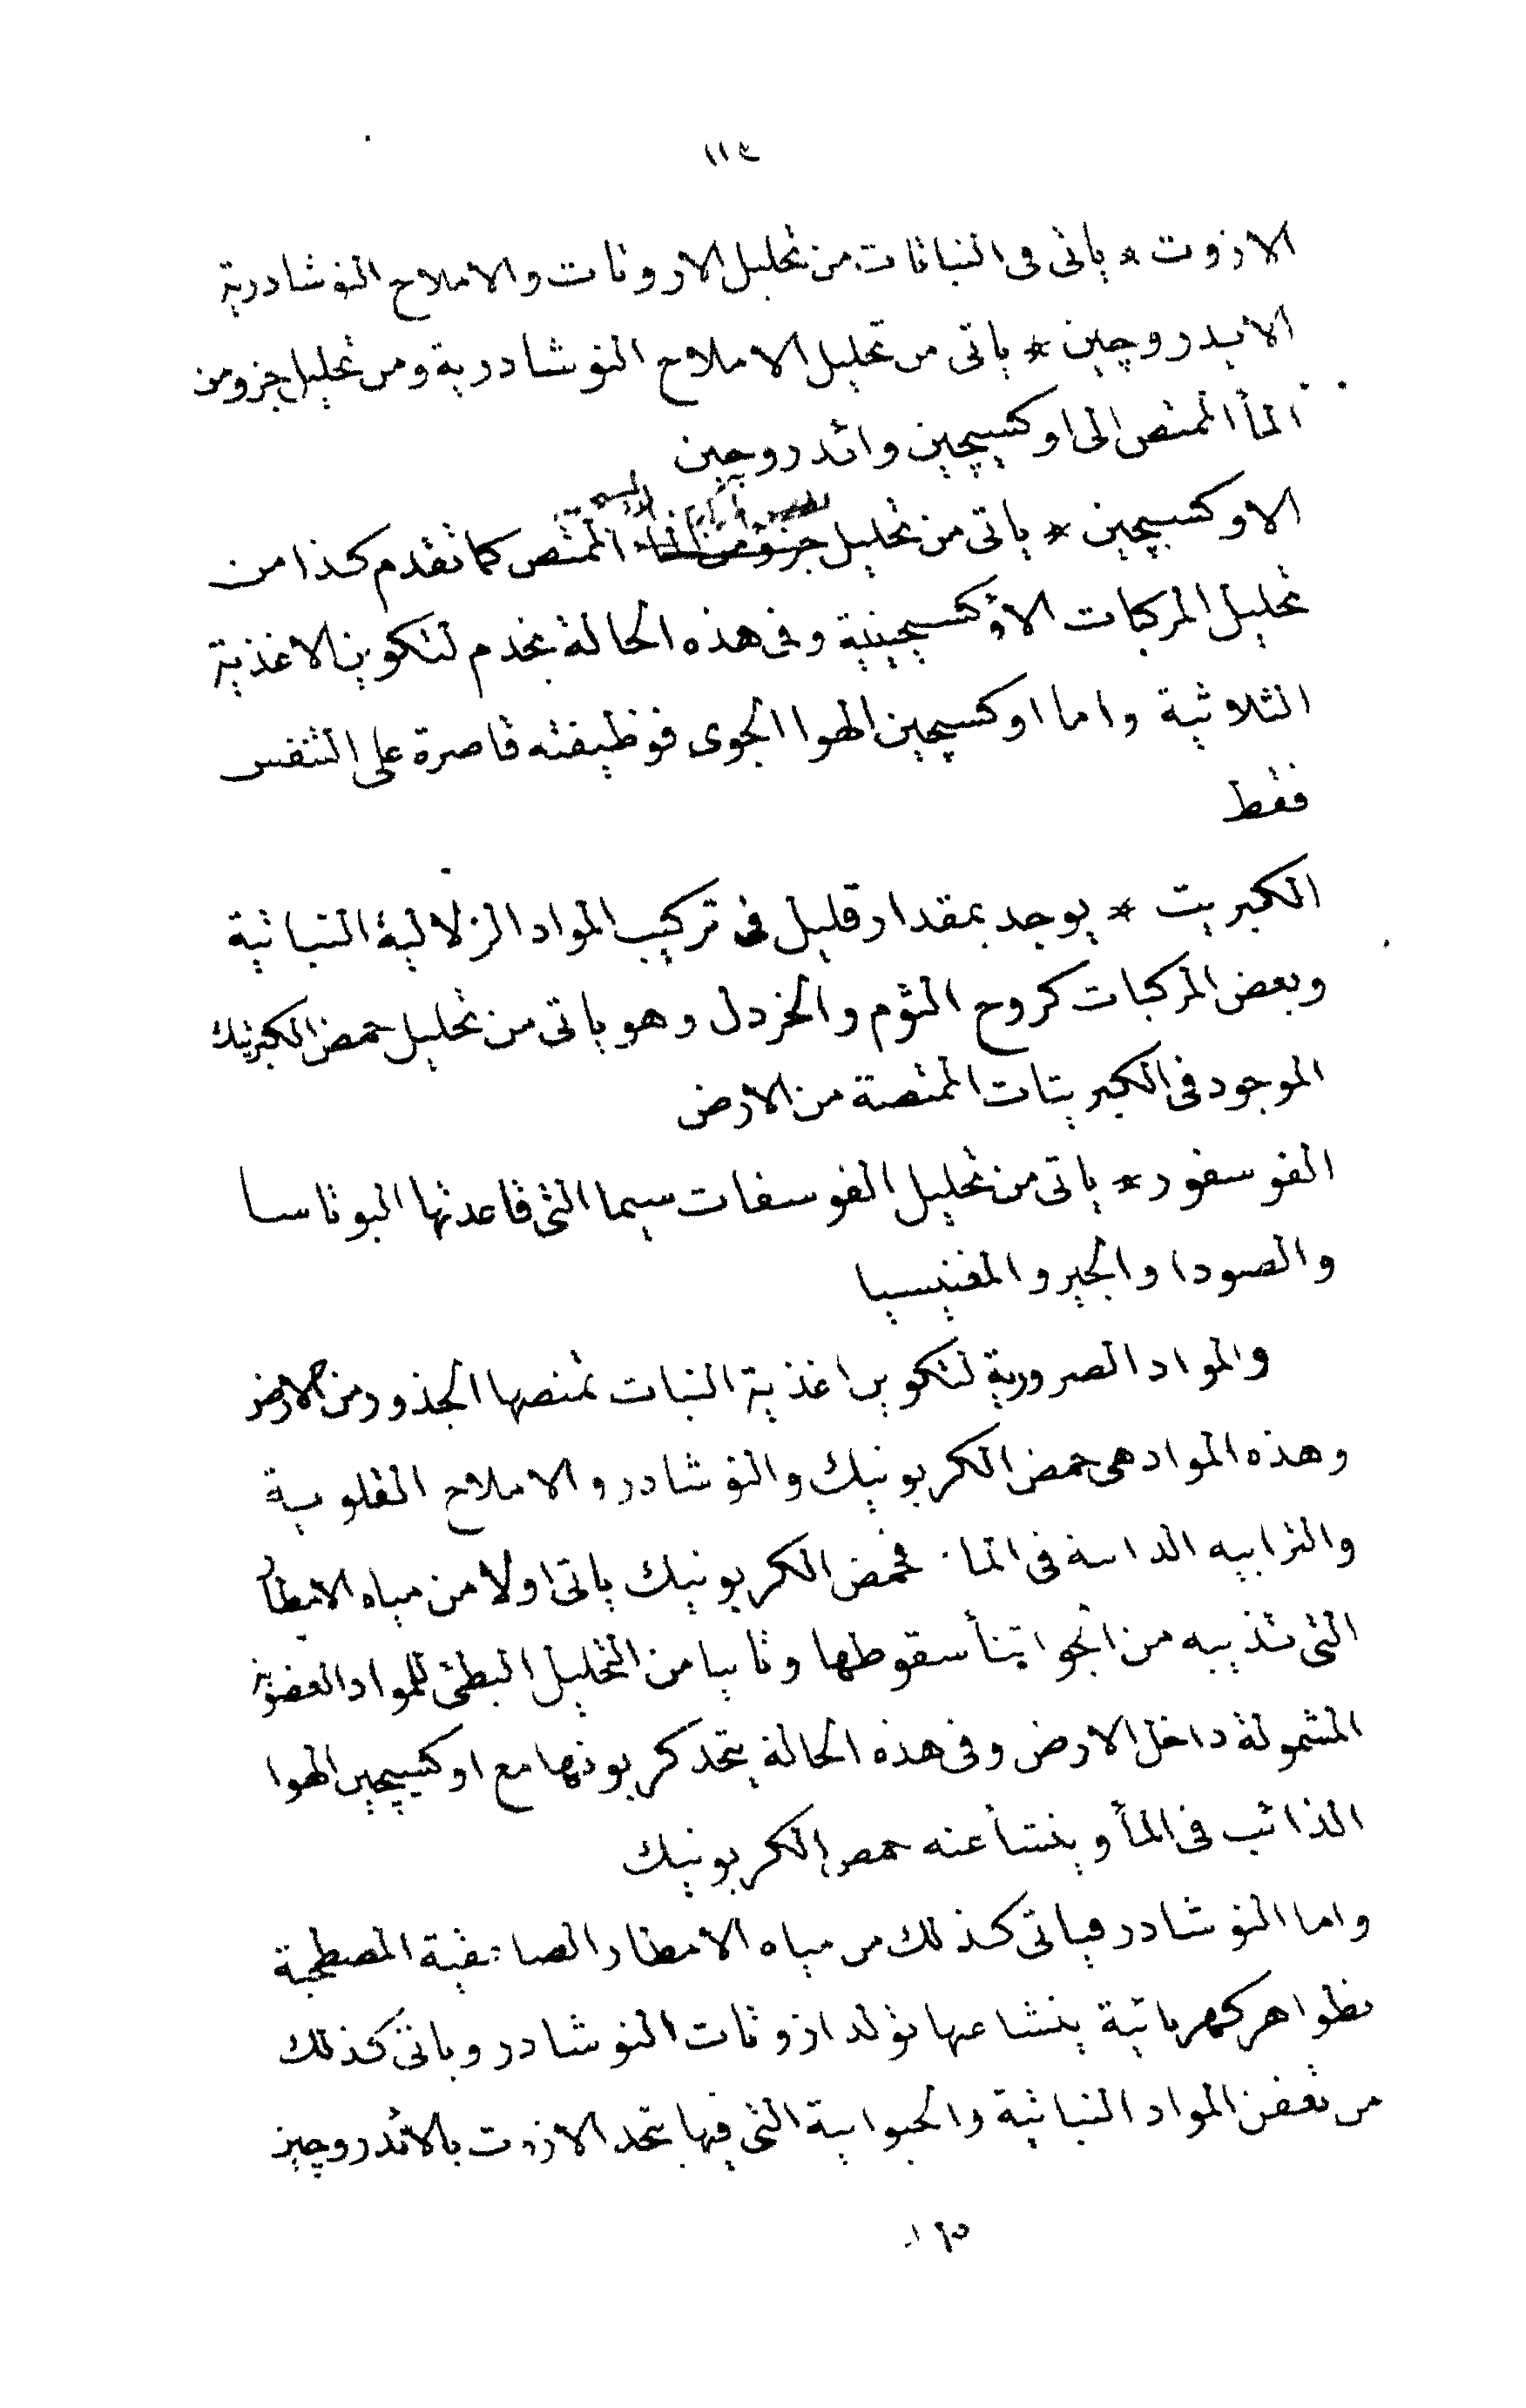 ١١٤
الازوت * ياتى فى النباتات من تحليل الازوتات والاملاح النوشادرية
الايدروچين * ياتى من تحليل الاملاح النوشادرية ومن تحليل جزو من
المأ الممتص الى اوكسيچين وائدروچين
الاوكسيچين * ياتى من تحليل جزو من المأ الممتص كما تقدم كذا من
تحليل المركبات الاوكسيچينية وفى هذه الحالة يخدم لتكوين الاغذية
الثلاثية واما اوكسيچين الهوا الجوى فوظيفته قاصرة على التنفس
فقط
الكبريت * يوجد بمقدار قليل فى تركيب المواد الزلالية النباتية
وبعض المركبات كروح الثوم والخردل وهو ياتى من تحليل حمض الكبريتيك
الموجود فى الكبريتات الممتصة من الارض
الفوسفور * ياتى من تحليل الفوسفات سيما التى قاعدتها البوتاسا
والصودا والجير والمغنيسيا
والمواد الضرورية لتكوين اغذية النبات تمتصها الجذور من الارض
وهذه المواد هى حمض الكربونيك والنوشادر والاملاح القلوية
والترابيه الدائبة فى المأ فحمض الكربونيك ياتى اولا من مياه الامطار
التى تذيبه من الجو اثنأ سقوطها وثانيا من التحليل البطئ للمواد العضوية
المشمولة داخل الارض وفى هذه الحالة يتحد كربونها مع اوكسيچين الهوا
الذائب فى المأ وينشأ عنه حمض الكربونيك
واما النوشادر فياتى كذلك من مياه الامطار الصاعقية المصطحبة
بظواهر كهربائية ينشا عنها تولد ازوتات النوشادر وياتى كذلك
من تعفن المواد النباتية والحيوانية التى فيها يتحد الازوت بالائدروچين